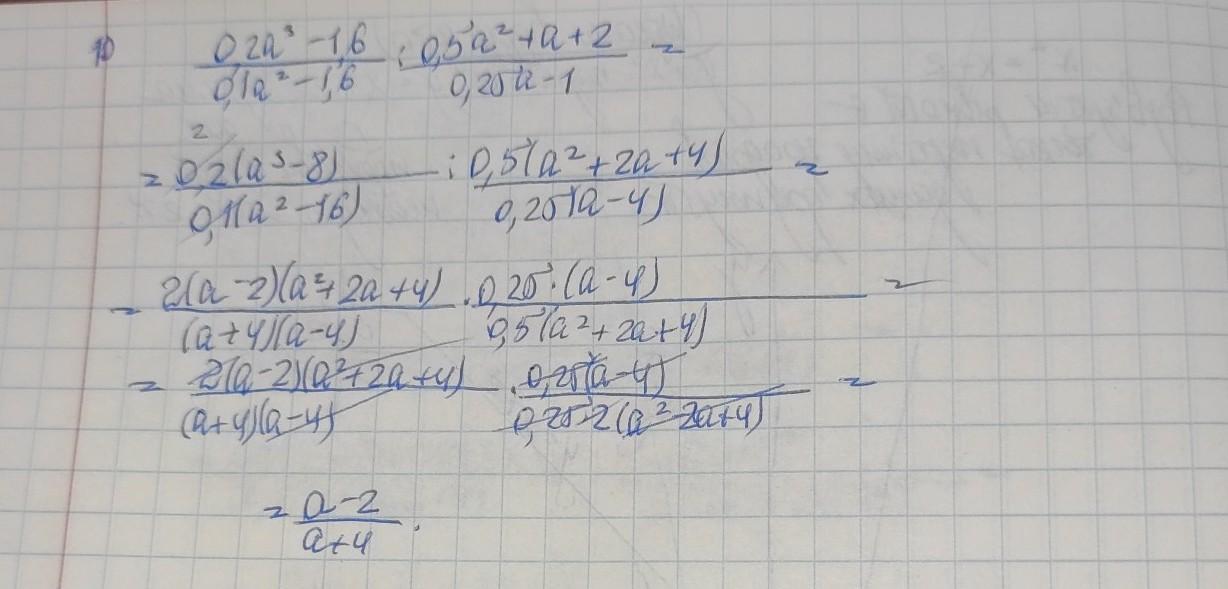 10 (0,2a³ - 1,6)/(0,1a² - 1,6) : (0,5a² + a + 2)/(0,25a - 1) =
= (0,2(a³ - 8))/(0,1(a² - 16)) : (0,5(a² + 2a + 4))/(0,25(a - 4)) =
= (2(a - 2)(a² + 2a + 4))/((a + 4)(a - 4)) · (0,25·(a - 4))/(0,5(a² + 2a + 4)) =
= (2(a - 2)(a² + 2a + 4))/((a + 4)(a - 4)) · (0,25(a - 4))/(0,25·2(a² - 2a + 4)) =
= (a - 2)/(a + 4).